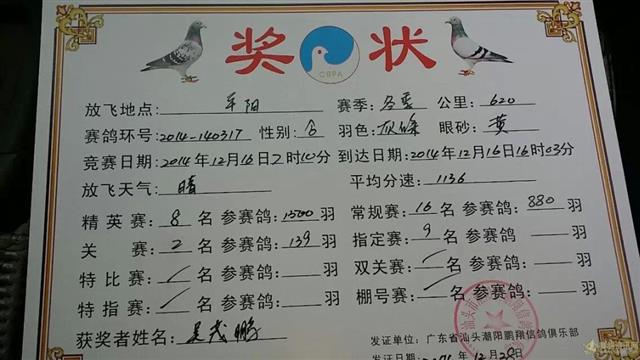 奖 CRPA 状
放飞地点：平阳 赛季：冬季 公里：620
赛鸽环号：2014-140317 性别：合 羽色：灰绦 眼砂：黄
竞赛日期：2014年12月16日7时10分 到达日期：2014年12月16日16时03分
放飞天气：晴 平均分速：1136
精英赛：8名 参赛鸽：1500羽 常规赛：16名 参赛鸽：880羽
关 赛：2名 参赛鸽：139羽 指定赛：9名 参赛鸽 羽
特比赛：/名 参赛鸽： 羽 双关赛：/名 参赛鸽： 羽
特指赛：/名 参赛鸽： 羽 棚号赛：/名 参赛鸽： 羽
获奖者姓名：吴茂鹏
发证单位：广东省汕头潮阳鹏翔信鸽俱乐部
发证日期：2014年12月28日